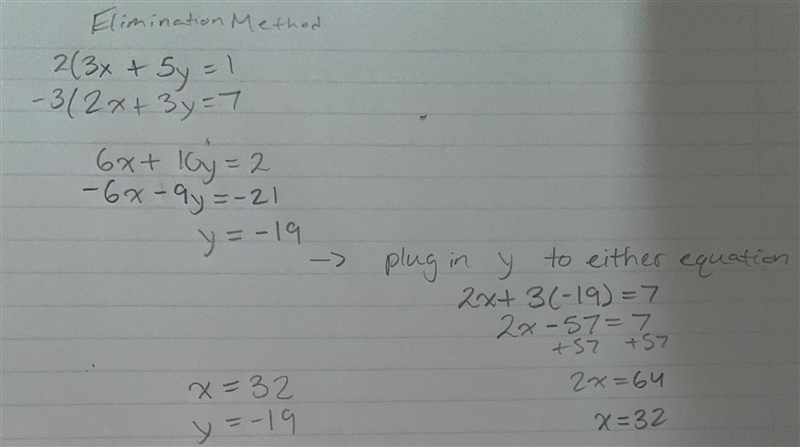 Elimination Method
2(3x + 5y = 1
-3(2x + 3y = 7
6x + 10y = 2
-6x - 9y = -21
y = -19
-> plug in y to either equation
2x + 3(-19) = 7
2x - 57 = 7
+57 +57
2x = 64
x = 32
x = 32
y = -19